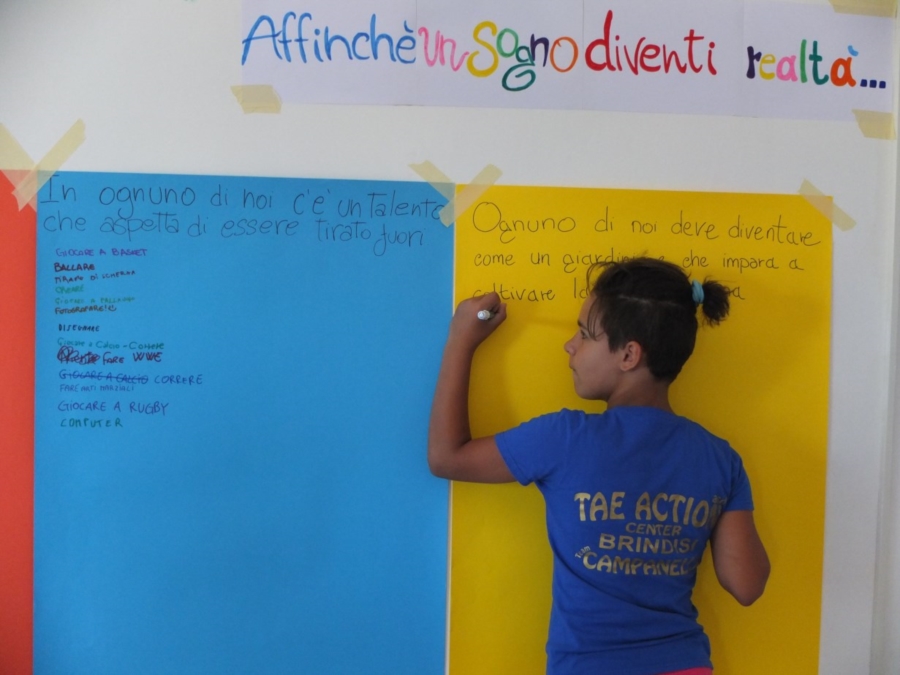 Affinchè un Sogno diventi realtà...
In ognuno di noi c'e' un Talento
che aspetta di essere tirato fuori
GIOCARE A BASKET
BALLARE
DISEGNARE
Giocare a Calcio - Correre
FARE WWE
GIOCARE A CALCIO CORRERE
FARE ARTI MARZIALI
GIOCARE A RUGBY
COMPUTER
Ognuno di noi deve diventare
come un che impara a
coltivare
TAE ACTION
CENTER
BRINDISI
CAMPANELLA